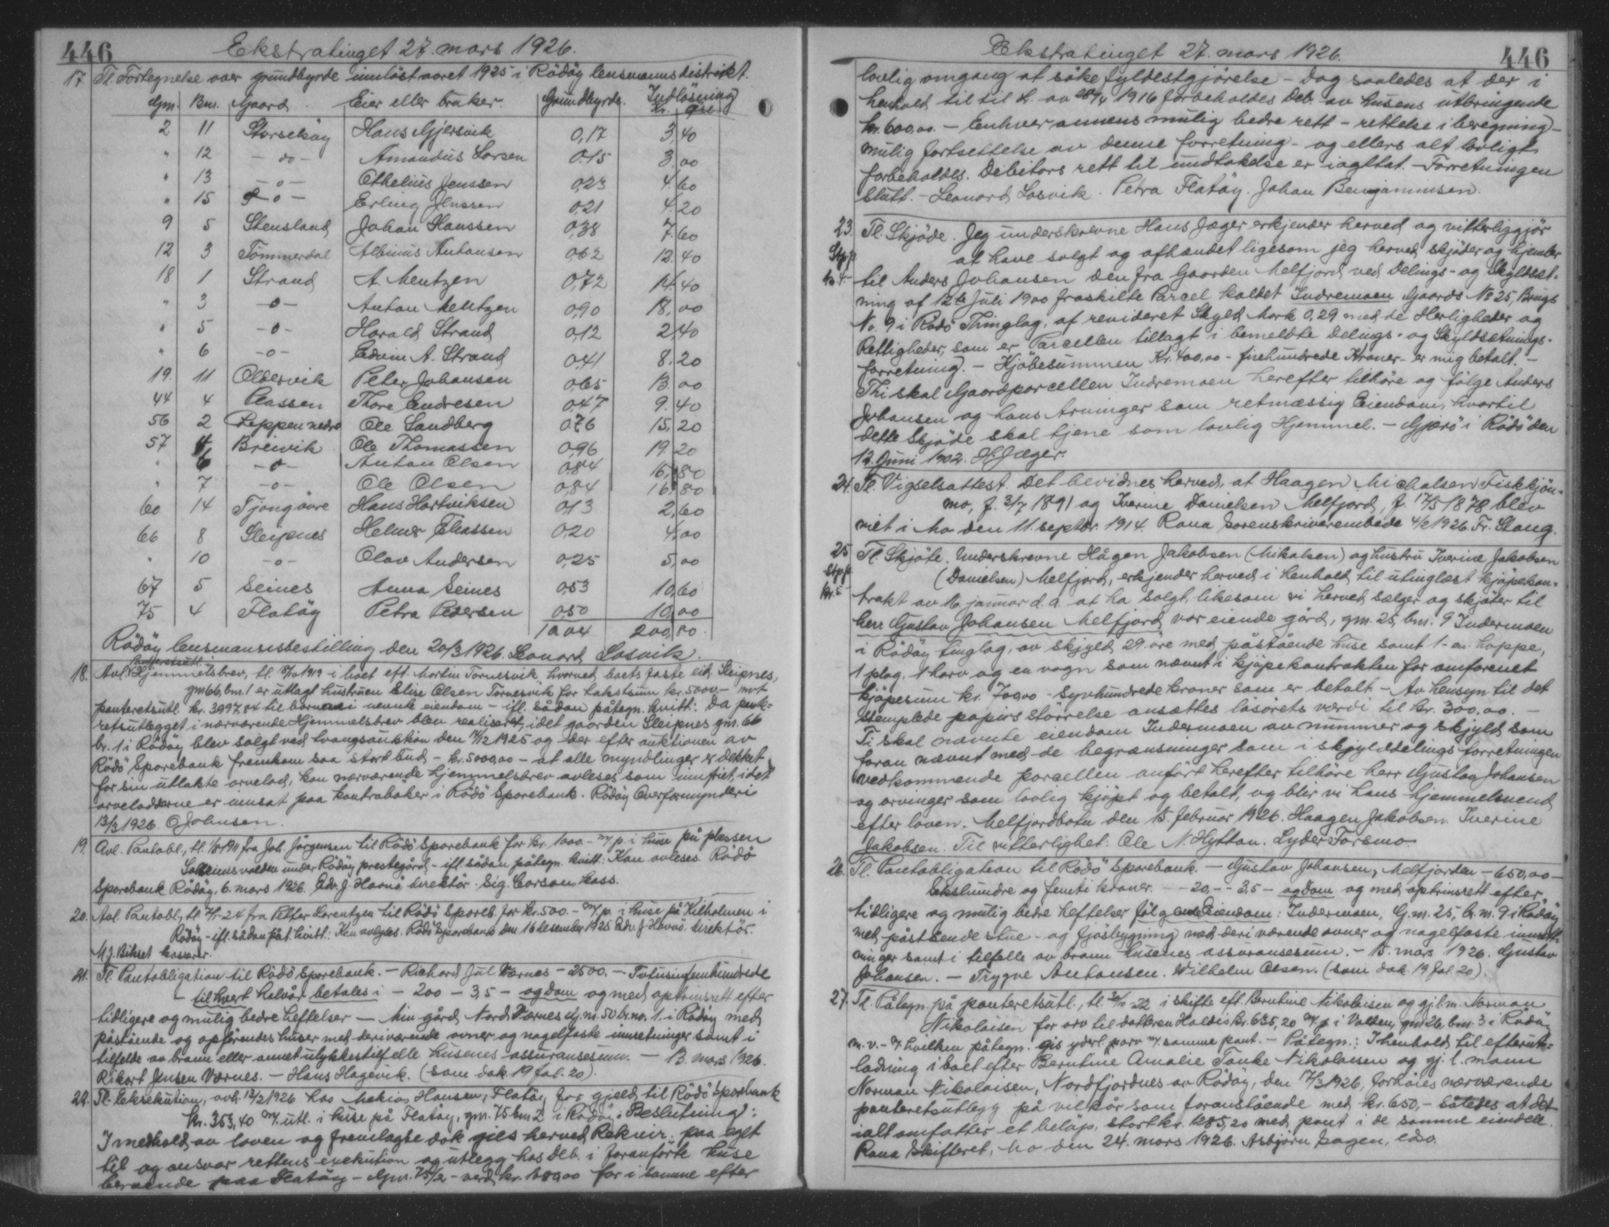 446 Ekstratinget 27. mars 1926.
17 Tl. Fortegnelse over grundbyrde innløst aaret 1925 i Rödöy lensmannsdistrikt.
Gjm. Bm. Gaard. Eier eller bruker. Grundbyrde. Indløsning Kr. Øre
2 11 Storselsöy Hans Gjersvik 0,17 3,40
" 12 -do- Amandus Larsen 0,15 3,00
" 13 -o- Othelius Jenssen 0,23 4,60
" 15 -o- Erling Jenssen 0,21 4,20
9 5 Stensland Johan Hanssen 0,38 7,60
12 3 Tömmerdal Albinus Antonsen 0,62 12,40
18 1 Strand A. Mentzen 0,72 14,40
" 3 -o- Anton Mentzen 0,90 18,00
" 5 -o- Harald Strand 0,12 2,40
" 6 -o- Edvin A. Strand 0,41 8,20
19 11 Oldervik Peter Johansen 0,65 13,00
44 4 Thore Endresen 0,47 9,40
56 2 Reppen nedre Ole Sandberg 0,76 15,20
57 4 Breivik Ole Thomassen 0,96 19,20
" 6 -o- Anton Olsen 0,84 16,80
" 7 -o- Ole Olsen 0,84 16,80
60 14 Tjongsöre Hans Hartviksen 0,13 2,60
66 8 Sleipnes Helmer Eliassen 0,20 4,00
" 10 -o- Olav Andersen 0,25 5,00
67 5 Seines Anna Seines 0,53 10,60
75 4 Flatöy Petra Pedersen 0,50 10,00
10,04 200,80
Rödöy lensmannsbestilling den 20/3 1926. Leonard Losvik.
18. Avl. Hjemmelsbrev, tl. 1919 i boet eft. Martin Tørnesvik, hvorved boets faste eid. Sleipnes,
gm 66, bm. 1 er utlagt hustruen Elise Olsen Tørnesvik for takstsum kr. 5000,- mot
panteretsutl. kr. 3997,84 til barna i nævnte eiendom - ifl. sådan påtegn. kvitt: Da pante-
retsutlegget i nærværende Hjemmelsbrev blev realisert, idet gaarden Sleipnes gm. 66
br. 1 i Rödöy blev solgt ved tvangsauktion den /12 1925 og der efter auktionen av
Rödö Sparebank fremkom saa stort bud - kr. 5000,00 - at alle myndlinger er dekket
for sin utlakte arvelod, kan nærværende hjemmelsbrev avleses som innfriet, idet
arveloddene er innsat paa kontrabøker i Rödö Sparebank. Rödöy Overformynderi
13/3 1926. O Johnsen.
19. Avl. Pantobl., tl. fra Joh. Jörgensen til Rödö Sparebank for kr. 1000.- m/ p. i huse på plassen
under Rödöy prestegård - ifl. sådan påtegn. kvitt: Kan avleses. Rödö
Sparebank Rödöy, 6. mars 1926. Edv. J. Havnö direktör. Sig. Larsen kass.
20. Avl. Pantobl., tl. 24 fra Peter Lorentzen til Rödö Spareb. for kr. 500.- m/ p. i huse på Kilholmen i
Rödöy - ifl. sådan påt. kvitt: Kan avleses. Rödö Sparebank den 16 desember 1925. Edv. J. Havnö direktör.
kasserer.
21. Tl. Pantobligation til Rödö Sparebank. - Richard Jul. Værnes - 2500.- Totusinfemhundrede
- til hvert halvår betales i - 200 - 3,5 - og dom og med optrinsrett efter
tidligere og mulig bedre heftelser - Min gård, Nord Værnes gm. 50 br. nr. 1. i Rödöy med
påstående og opførendes huser med deriværende ovner og nagelfaste innretninger samt i
tilfelde av brann eller annet ulykkestilfelle husenes assuransesum. - 13. mars 1926.
Rikart Jensen Værnes. - Hans Hagevik. (som dok 19 fol. 20).
22. Tl. Eksekution, avh. 13/2 1926 hos Hansen, Flatöy for gjeld til Rödö Sparebank
kr. 353,40 m/ utl. i huse på Flatöy, gm. 75 bm 2 i Rödöy. Beslutning:
I medhold av loven og fremlagte dok. gies herved Rekvir. paa eget
til og ansvar rettens exekution og utlegg hos Deb. i foranførte huse
beroende paa Flatöy - Gjm. 75/2 - verd. kr. 600,00 for i samme efter
Ekstratinget 27. mars 1926. 446
lovlig omgang at søke fyldestgjørelse - Dog saaledes at der i
henhold til til L. av 28/4 1916 forbeholdes Deb. av husens utbringende
kr. 600,00. - Enhver annens mulig bedre rett - rettelse i beregning -
mulig fortsettelse av denne forretning - og ellers alt lovlig
forbeholdes. Debitors rett til undtakelse er iagttat. - Forretningen
slutt. - Leonard Losvik. Petra Flatöy. Johan Benjaminsen.
23. Tl. Skjöde. Jeg underskrevne Hans Jæger erkjender herved og vitterliggjör
at have solgt og afhændet ligesom jeg herved skjöder og hjemler
til Anders Johansen den fra Gaarden Melfjord ved Delings- og Skyldset-
ning af 12te Juli 1900 fraskilte Parcel kaldet Indremoen Gaards No 25, Brugs
No. 9 i Rödö Thinglag, af revideret Skyld Mark 0,29 med de Herligheder og
Rettigheder, som er Parcellen tillagt i bemeldte Delings- og Skyldsetnings-
forretning. - Kjöbesummen Kr. 400,00 - firehundrede Kroner - er mig betalt. -
Thi skal Gaardparcellen Indremoen herefter tilhöre og fölge Anders
Johansen og hans Arvinger som retmæssig Eiendom, hvortil
dette Skjöde skal tjene som lovlig Hjemmel. - Gjerö i Rödö den
12. Juni 1902. H. Jæger.
24. Tl. Vigselsattest. Det bevidnes herved, at Haagen Mickalsen Fiskkjön-
mo, f. 3/7 1891 og Iverine Danielsen Melfjord, f. 17/5 1878 blev
viet i Mo den 11. septbr. 1914. Rana Sorenskriverembede 4/2 1926. Fr.
25 Tl. Skjöte. Underskrevne Hågen Jakobsen (Mikalsen) og hustru Iverine Jakobsen
(Danielsen) Melfjord, erkjender herved i henhold til utinglæst kjöpekon-
trakt av 16. januar d.å. at ha solgt, likesom vi herved sælger og skjöter til
herr Gustav Johansen Melfjord vor eiende gård, gm. 25, bm. 9 Indermoen
i Rödöy tinglag, av skyld 29. öre med påstående huse samt 1 - en hoppe,
1 plog, 1 harv og en vogn som nævnt i kjöpekontrakten for omforenet
kjöpesum kr. 700,00 - Syvhundrede kroner som er betalt. - Av hensyn til det
stemplede papirs störrelse ansættes lösörets værdi til kr. 300,00. -
Ti skal nævnte eiendom Indermoen av nummer og skyld som
foran nævnt med de begrænsninger som i skylddelings forretningen
vedkommende parcellen anført herefter tilhöre herr Gustav Johansen
og arvinger som lovlig kjöpt og betalt, og blir vi hans hjemmelsmend
efter loven. Melfjordbotn den 15. februar 1926. Haagen Jakobsen Iverine
Jakobsen. Til vitterlighet: Ole N. Hyttan. Lyder Forsmo.
26. Tl. Pantobligation til Rödö Sparebank - Gustav Johansen, Melfjorden - 650,00 -
Sekshundre og femti kroner. - - 20,- - 3,5 - og dom og med optrinsrett efter
tidligere og mulig bedre heftelser følgende Eiendom: Indermoen, G.m. 25, br. m. 9 i Rödöy
med påstående stue - og fjösbygning med deri værende ovner og nagelfaste innret-
ninger samt i tilfelle av brann husenes assuransesum. - 15. mars 1926. Gustav
Johansen. - Trygve Antonsen. Wilhelm Olsen. (som dok 19 fol. 20).
27. Tl. Påtegn. på panteretsutl., tl. 22 i skifte eft. Berntine Nikolaisen og gj.lm. Norman
Nikolaisen for arv til datteren Haldis kr. 635,20 m/ p. i Valden, gm. 26, bm. 3 i Rödöy
m.v. - hvilken påtegn. gis yderl. parv m/ samme pant. - Påtegn.: I henhold til efterut-
lodning i boet efter Berntine Amalie Tanke Nikolaisen og gj. l. mann
Norman Nikolaisen, Nordfjordnes av Rödöy, den 17/3 1926, forhöies nærværende
panteretsutlegg på vilkår som foranstående med kr. 650,- således at det
ialt omfatter et belöp, stort kr. 1285,20 med pant i de samme eiendele.
Rana Skifteret, Mo den 24. mars 1926. Asbjörn